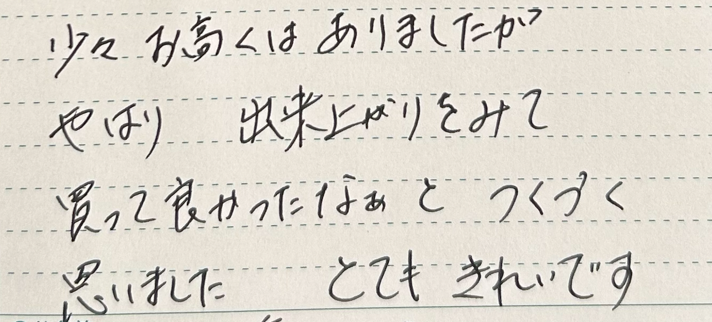 少々 お高くは ありましたが
やはり 出来上がりをみて
買って良かったなぁ と つくづく
思いました とても きれいです